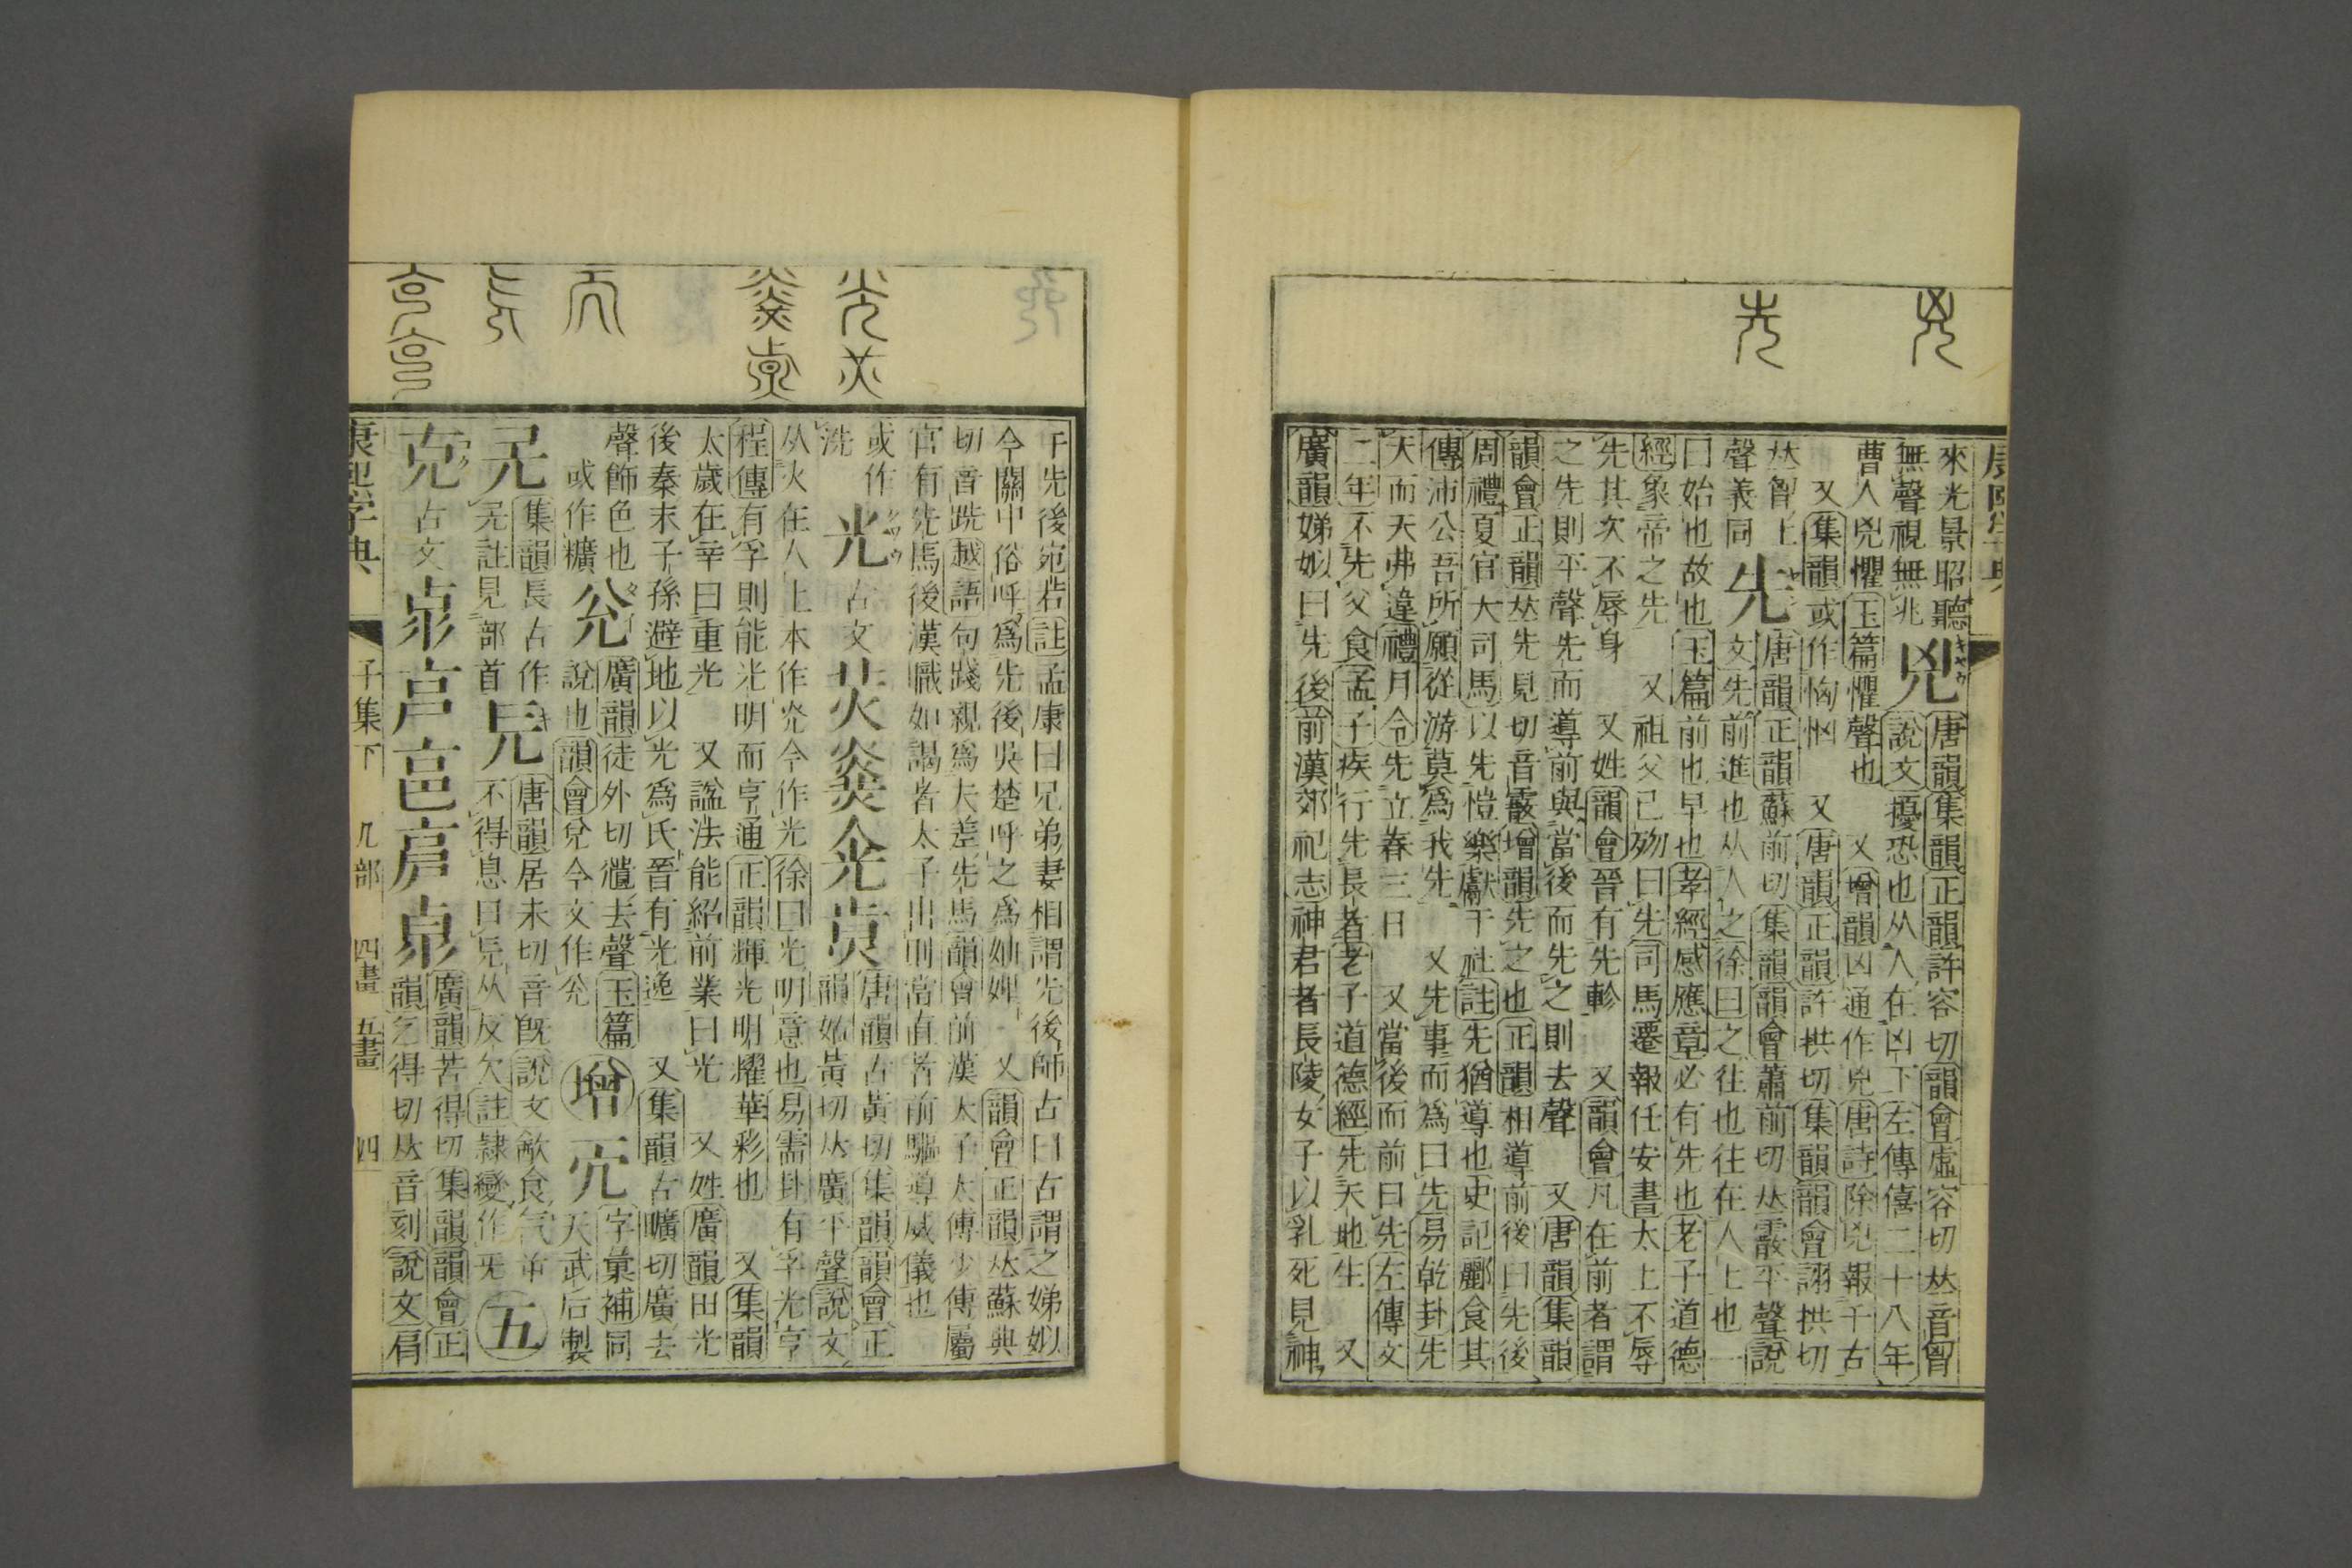 來光景昭聽
無聲視無兆
兇
キヤウ
唐韻集韻正韻許容切韻會虛容切𠀤音匈
說文擾恐也从人在凶下左傳僖二十八年
曹人兇懼玉篇懼聲也 又增韻凶通作兇唐詩除兇報千古
又集韻或作恟忷 又唐韻正韻許拱切集韻韻會詡拱切
𠀤匈上
聲義同
先
唐韻正韻蘇前切集韻韻會蕭前切𠀤霰平聲說
文先前進也从人之徐曰之往也往在人上也一
曰始也故也玉篇前也早也孝經感應章必有先也老子道德
經象帝之先 又祖父已歾曰先司馬遷報任安書太上不辱
先其次不辱身 又姓韻會晉有先軫 又韻會凡在前者謂
之先則平聲先而導前與當後而先之則去聲 又唐韻集韻
韻會正韻𠀤先見切音霰增韻先之也正韻相導前後曰先後
周禮夏官大司馬以先愷樂獻于社註先猶導也史記酈食其
傳沛公吾所願從游莫爲我先 又先事而爲曰先易乾卦先
天而天弗違禮月令先立春三日 又當後而前曰先左傳文
二年不先父食孟子疾行先長者老子道德經先天地生 又
廣韻娣姒曰先後前漢郊祀志神君者長陵女子以乳死見神
于先後宛若註孟康曰兄弟妻相謂先後師古曰古謂之娣姒
今關中俗呼爲先後吳楚呼之爲妯娌 又韻會正韻𠀤蘇典
切音跣越語句踐親爲夫差先馬韻會前漢太子太傅少傅屬
官有先馬後漢職如謁者太子出則當直者前驅導威儀也
或作
洗
光
クワウ
古文
灮炗炛𤉡𤎫
唐韻古黃切集韻韻會正
韻姑黃切𠀤廣平聲說文
从火在人上本作灮今作光徐曰光明意也易需卦有孚光亨
程傳有孚則能光明而亨通正韻輝光明耀華彩也 又集韻
太歲在辛曰重光 又諡法能紹前業曰光 又姓廣韻田光
後秦末子孫避地以光爲氏晉有光逸 又集韻古曠切廣去
聲飾色也
或作䊯
兊
廣韻徒外切𧸖去聲玉篇
說也韻會兌今文作兊
增
兲
字彙補同
天武后製
兂
集韻長古作
兂註見部首
旡
唐韻居未切音旣說文㱃食气屰
不得息曰旡从反欠註隸變作旡
五
克
コク
古文
廣韻苦得切集韻韻會正
韻乞得切𠀤音刻說文肩
康熙字典
子集下 儿部 四畫 五畫 四